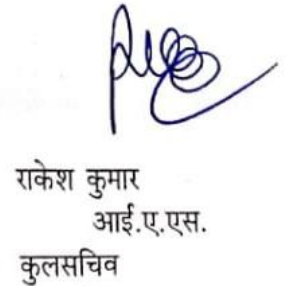 राकेश कुमार
आई.ए.एस.
कुलसचिव